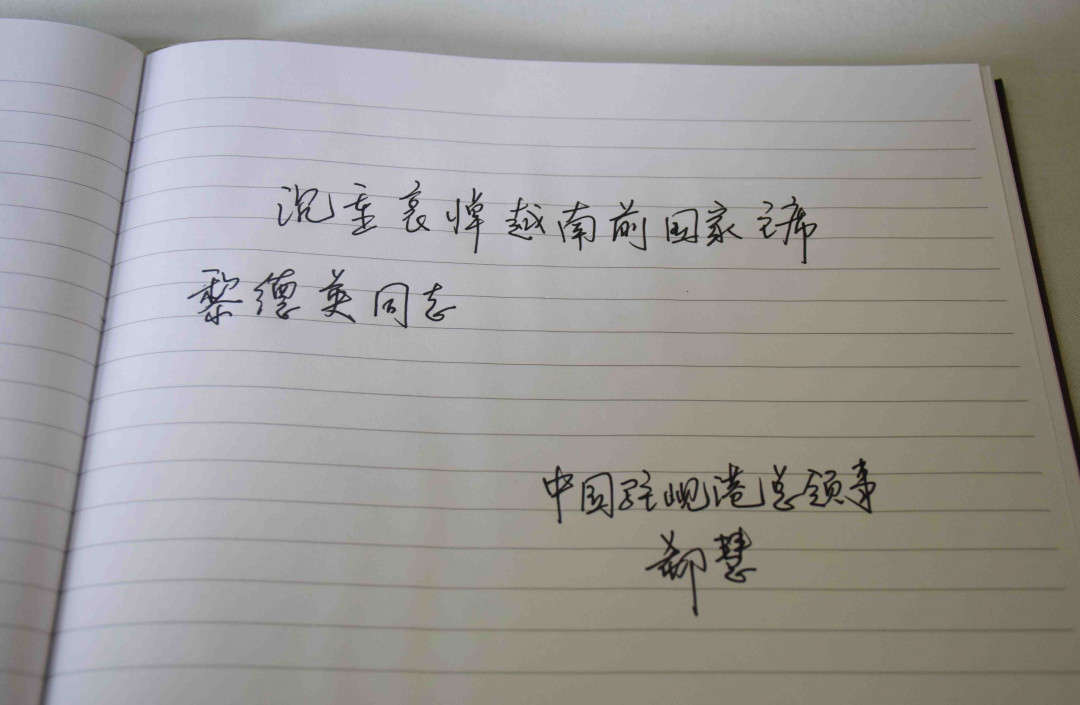 沉重哀悼越南前国家主席
黎德英同志
中国驻岘港总领事
郗慧